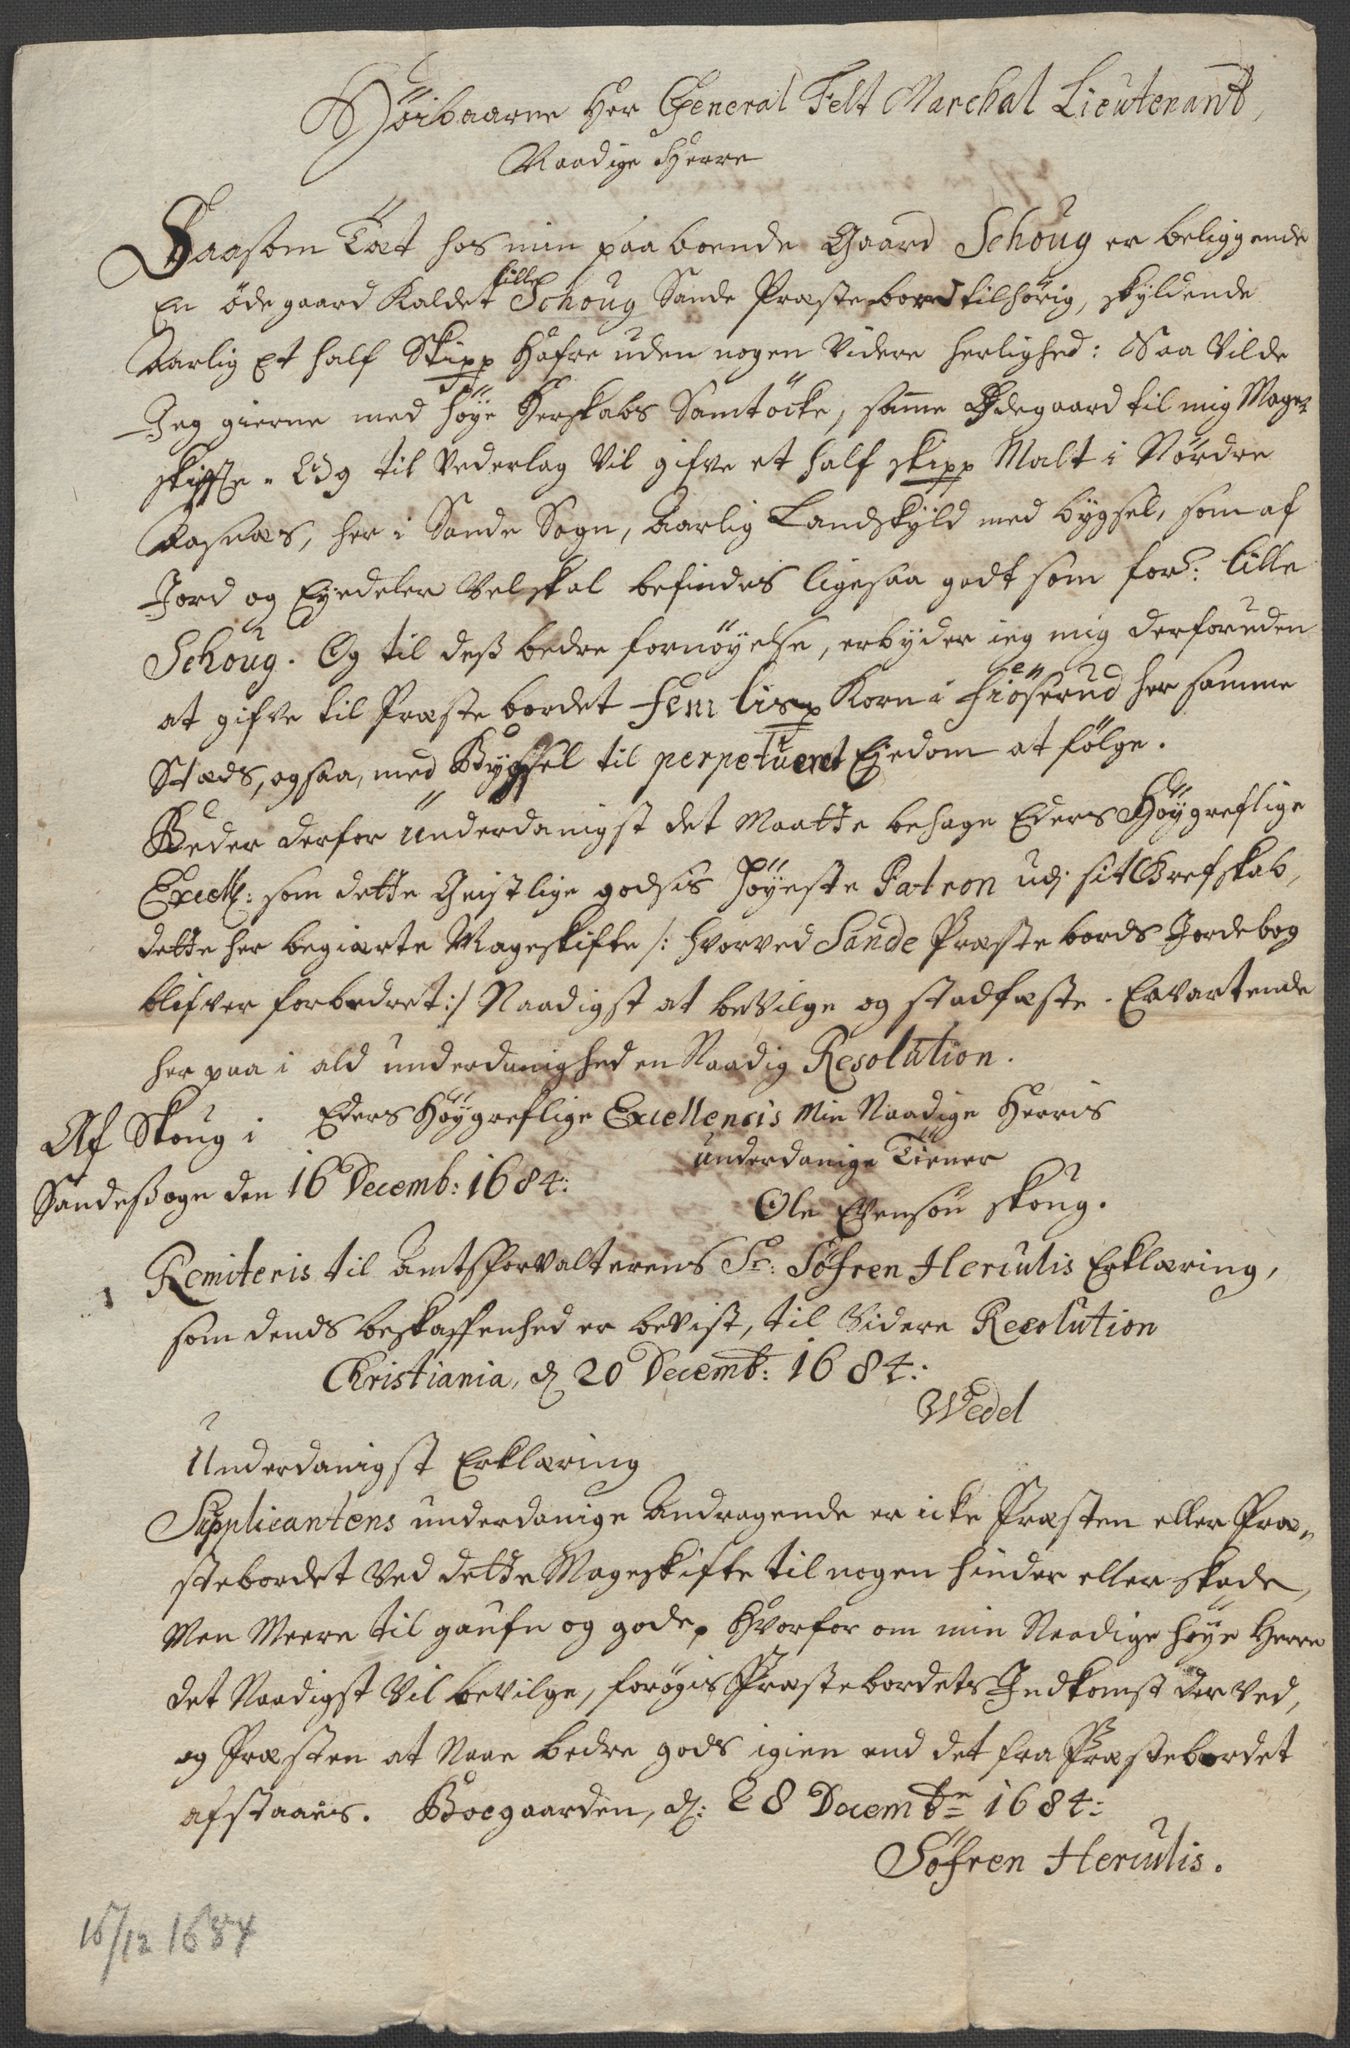 Høibaarne Her General Felt Marchal Lieutenant,
Naadige Herre
Saasom Tæt hos min paaboende Gaard Schoug er beliggende
En øde gaard Kaldet lille Schoug Sande Præstebord tilhørig, skyldende
Aarlig Et half Skipp Hafre uden nogen Videre herlighed: Saa Vilde
Jeg gierne med høye Herskabs Samtöcke, samme Ødegaard til mig Mage-
skifte. Og til Vederlag Vil gifve et half skipp Malt i Nørdre
Aasnæs, her i Sande Sogn, Aarlig Landskyld med bygsel, som af
Jord og Eyedeler Vel skal befindes ligesaa godt som for: lille
Schoug. Og til dess bedre fornøyelse, erbyder ieg mig derforuden
at gifve til Præste bordet fem lisp Korn i Fiøserud her samme
Stæds, ogsaa, med Bygsel til perpetueret Eiedom at følge.
Beder derfor Underdanigst det Maatte behage Eders Høygreflige
Excell: som dette Geistlige godsis høyeste Patron udj sit Grefskab,
dette her begiærte Mageskifte /: hvorved Sande Præste bords Jordebog
blifver forbedret :/ Naadigst at beVilge og stadfæste. Ervartende
her paa i ald underdanighed en Naadig Resolution.
Eders Høygreflige Excellencis Min Naadige Herris
underdanige Tiener
Ole Evensøn skoug.
Af Skoug i
Sandessogn den 16 Decemb: 1684:
Remiteris til Amtsforvalterens Sr: Søfren Herculis Erklæring,
som dends beskaffenhed er bevist, til Videre Resolution
Christiania, d 20 Decemb: 1684:
Wedel
Underdanigst Erklæring
Supplicantens underdanige Andragende er icke Præsten eller Præ-
stebordet Ved dette Mageskifte til nogen hinder eller skade,
Men Meere til gaufn og gode, Hvorfor om min Naadige høye Herre
det Naadigst Vil bevilge, forøgis Præstebordets Indkomst der Ved,
og Præsten at Naae bedre gods igien end det fra Præstebordet
afstaaes. Boegaarden, d: 28 Decembr 1684:
Søfren Herculis.
16/12 1684